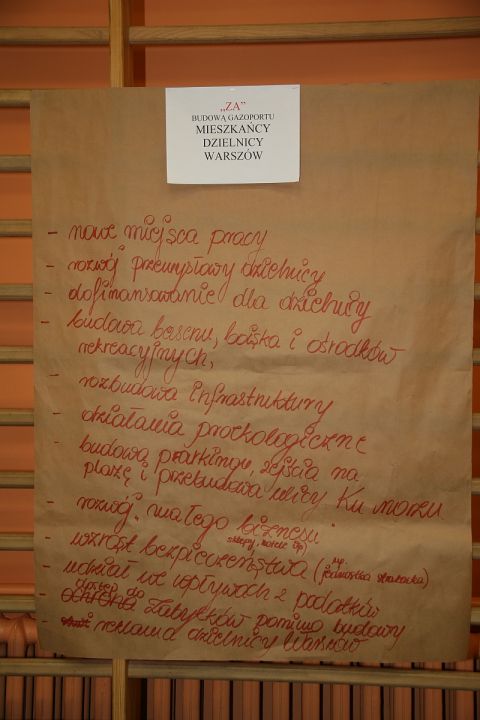 „ZA”
BUDOWĄ GAZOPORTU
MIESZKAŃCY
DZIELNICY
WARSZÓW
- nowe miejsca pracy
- rozwój przemysłowy dzielnicy
- dofinansowanie dla dzielnicy
- budowa basenu, boiska i ośrodków
rekreacyjnych,
- rozbudowa infrastruktury
- działania proekologiczne
- budowa parkingu, zejścia na
plażę i przebudowa ulicy Ku morzu
- rozwój „małego biznesu”
sklepy, hotele itp)
- wzrost bezpieczeństwa (np.
jednostka strażacka)
- udział we wpływach z podatków
dostęp do
- ochrona zabytków pomimo budowy
- reklama dzielnicy Warszów